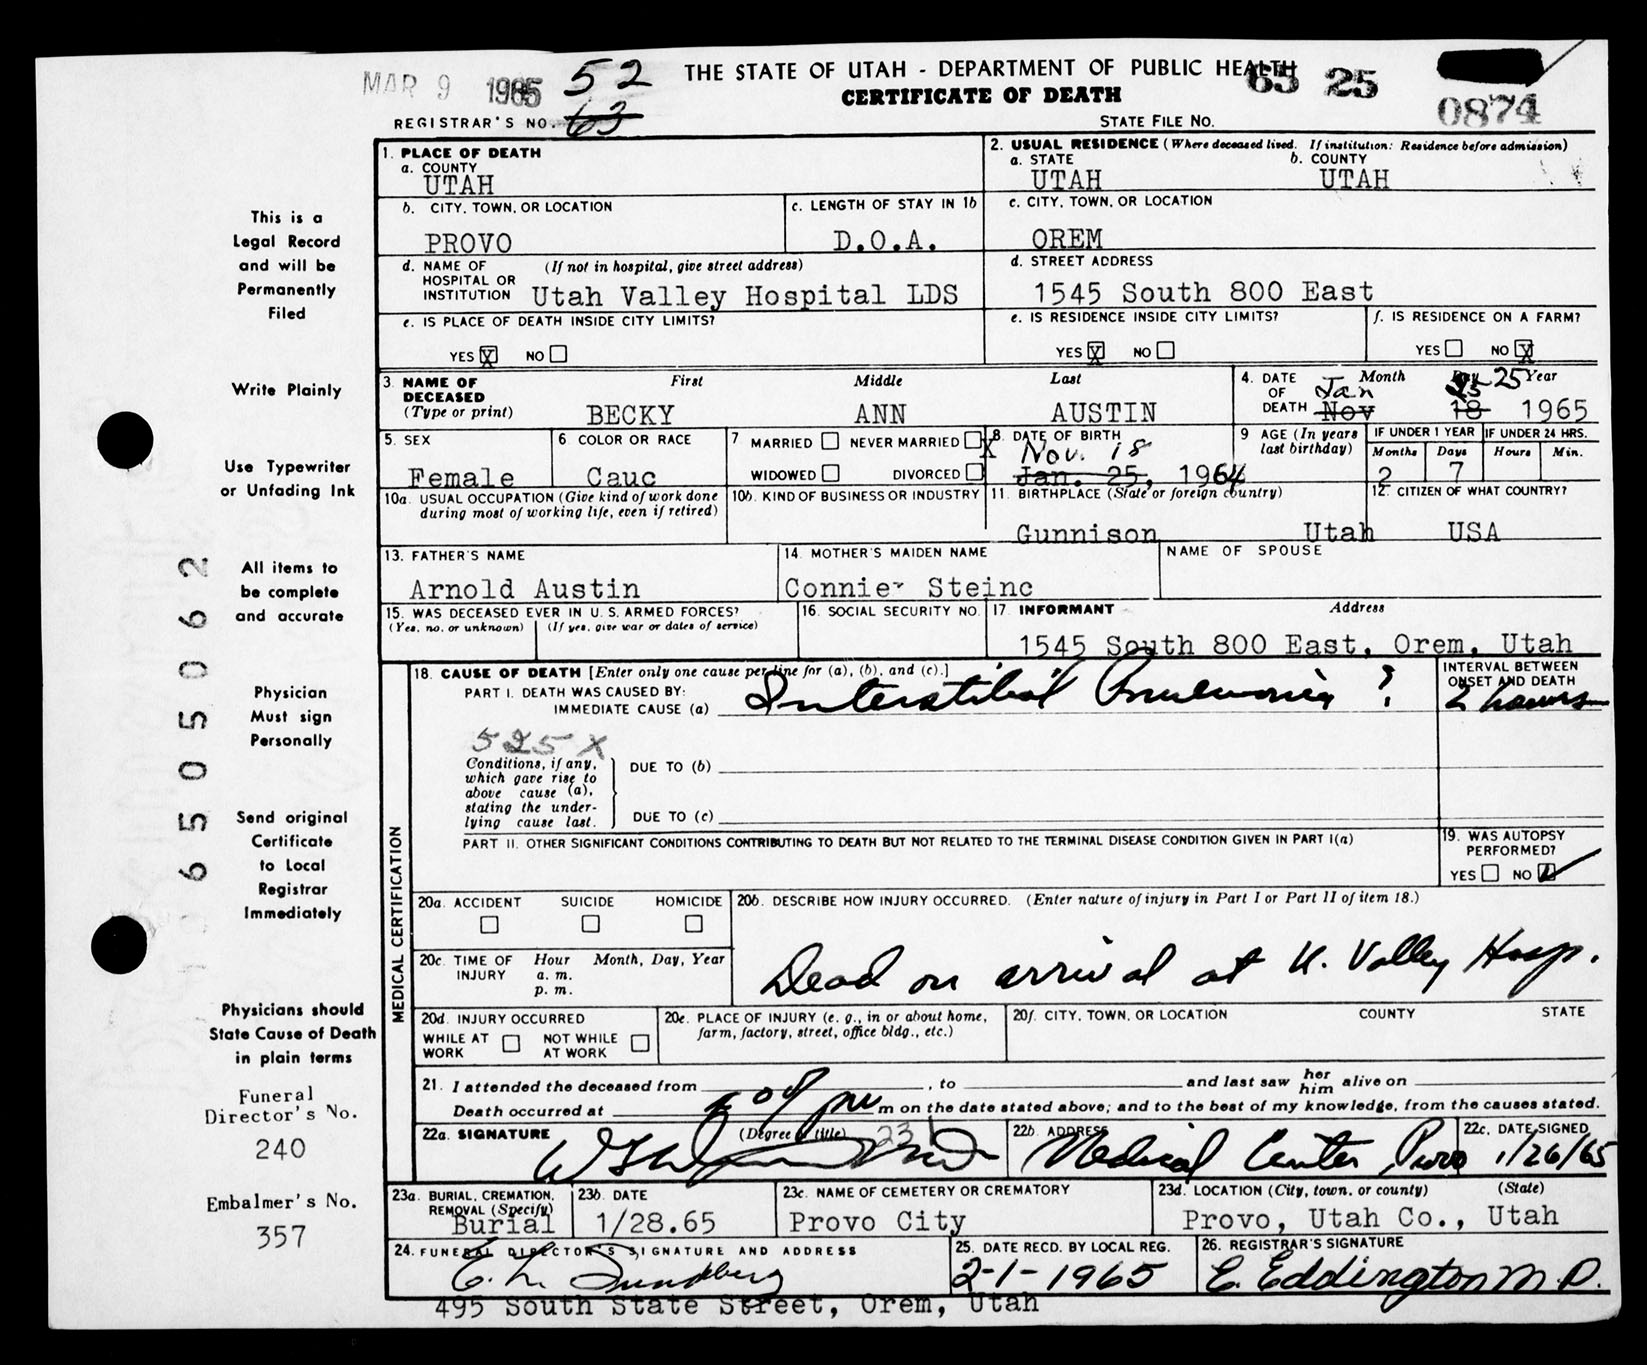 MAR 9 1965 52 THE STATE OF UTAH - DEPARTMENT OF PUBLIC HEALTH 65 25
CERTIFICATE OF DEATH 0874
REGISTRAR'S NO. 63 STATE FILE NO.
1. PLACE OF DEATH
a. COUNTY
UTAH
2. USUAL RESIDENCE (Where deceased lived. If institution: Residence before admission)
a. STATE b. COUNTY
UTAH UTAH
b. CITY, TOWN, OR LOCATION c. LENGTH OF STAY IN 1b c. CITY, TOWN, OR LOCATION
PROVO D.O.A. OREM
d. NAME OF HOSPITAL OR INSTITUTION (If not in hospital, give street address)
Utah Valley Hospital LDS
d. STREET ADDRESS
1545 South 800 East
e. IS PLACE OF DEATH INSIDE CITY LIMITS?
YES X NO
e. IS RESIDENCE INSIDE CITY LIMITS?
YES X NO
f. IS RESIDENCE ON A FARM?
YES NO X
3. NAME OF DECEASED (Type or print) First Middle Last
BECKY ANN AUSTIN
4. DATE OF DEATH Month Day Year
Jan 25 25
Nov 18 1965
5. SEX
Female
6 COLOR OR RACE
Cauc
7 MARRIED NEVER MARRIED X
WIDOWED DIVORCED
8. DATE OF BIRTH
Nov. 18
Jan. 25, 1964
9 AGE (In years last birthday)
IF UNDER 1 YEAR IF UNDER 24 HRS.
Months Days Hours Min.
2 7
10a. USUAL OCCUPATION (Give kind of work done during most of working life, even if retired)
10b. KIND OF BUSINESS OR INDUSTRY
11. BIRTHPLACE (State or foreign country)
Gunnison Utah
12. CITIZEN OF WHAT COUNTRY?
USA
13. FATHER'S NAME
Arnold Austin
14. MOTHER'S MAIDEN NAME
Connie Steinc
NAME OF SPOUSE
15. WAS DECEASED EVER IN U. S. ARMED FORCES?
(Yes, no, or unknown) (If yes, give war or dates of service)
16. SOCIAL SECURITY NO.
17. INFORMANT Address
1545 South 800 East, Orem, Utah
MEDICAL CERTIFICATION
18. CAUSE OF DEATH [Enter only one cause per line for (a), (b), and (c).]
PART I. DEATH WAS CAUSED BY:
IMMEDIATE CAUSE (a) Interstitial Pneumonia ?
INTERVAL BETWEEN ONSET AND DEATH
2 hours
525 X
Conditions, if any, which gave rise to above cause (a), stating the underlying cause last.
DUE TO (b)
DUE TO (c)
PART II. OTHER SIGNIFICANT CONDITIONS CONTRIBUTING TO DEATH BUT NOT RELATED TO THE TERMINAL DISEASE CONDITION GIVEN IN PART I(a)
19. WAS AUTOPSY PERFORMED?
YES NO
20a. ACCIDENT SUICIDE HOMICIDE
20b. DESCRIBE HOW INJURY OCCURRED. (Enter nature of injury in Part I or Part II of item 18.)
Dead on arrival at U. Valley Hosp.
20c. TIME OF INJURY Hour Month, Day, Year
a. m.
p. m.
20d. INJURY OCCURRED
WHILE AT WORK NOT WHILE AT WORK
20e. PLACE OF INJURY (e. g., in or about home, farm, factory, street, office bldg., etc.)
20f. CITY, TOWN, OR LOCATION COUNTY STATE
21. I attended the deceased from , to and last saw her him alive on
Death occurred at m on the date stated above; and to the best of my knowledge, from the causes stated.
22a. SIGNATURE (Degree or title)
22b. ADDRESS
Medical Center Provo
22c. DATE SIGNED
1/26/65
23a. BURIAL, CREMATION, REMOVAL (Specify)
Burial
23b. DATE
1/28.65
23c. NAME OF CEMETERY OR CREMATORY
Provo City
23d. LOCATION (City, town, or county) (State)
Provo, Utah Co., Utah
24. FUNERAL DIRECTOR'S SIGNATURE AND ADDRESS
E. L. Sundberg
495 South State Street, Orem, Utah
25. DATE RECD. BY LOCAL REG.
2-1-1965
26. REGISTRAR'S SIGNATURE
E. Eddington M.D.
This is a
Legal Record
and will be
Permanently
Filed
Write Plainly
Use Typewriter
or Unfading Ink
All items to
be complete
and accurate
Physician
Must sign
Personally
Send original
Certificate
to Local
Registrar
Immediately
Physicians should
State Cause of Death
in plain terms
Funeral
Director's No.
240
Embalmer's No.
357
65050062